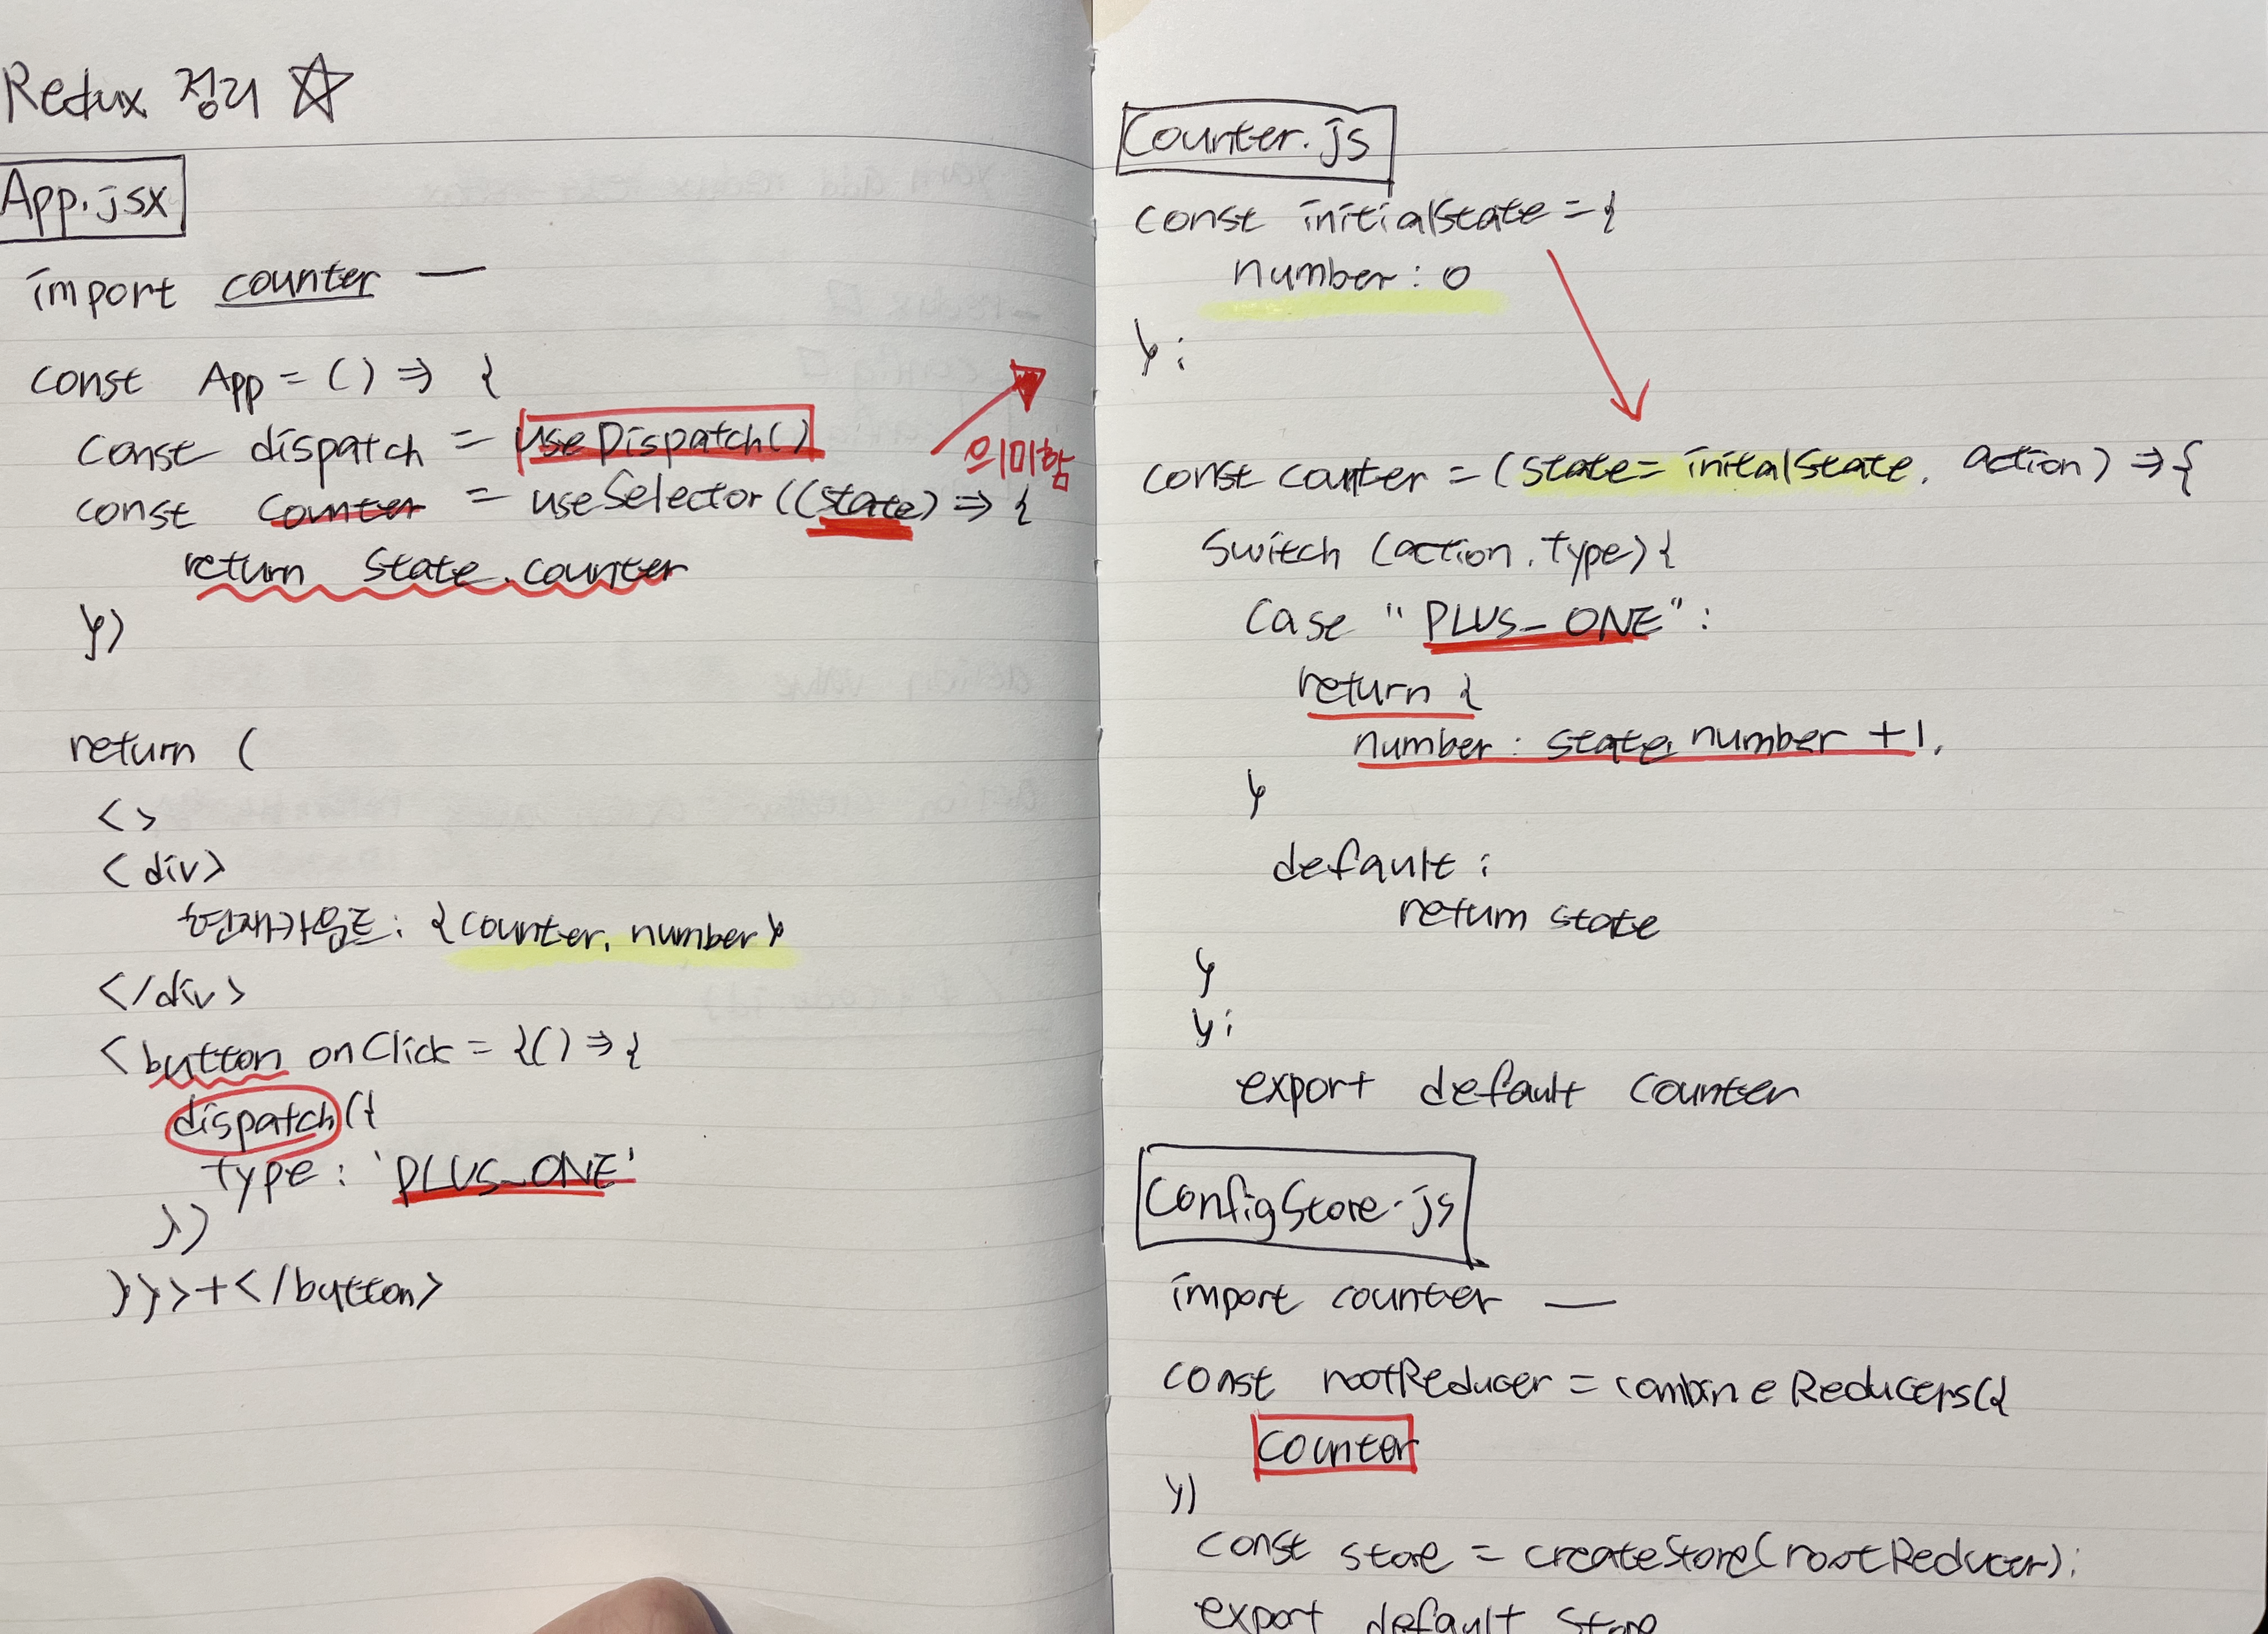 Redux 정리 ☆
App.jsx
import counter —
const App = () => {
const dispatch = useDispatch()
의미함
const counter = useSelector((state) => {
return state.counter
})
return (
<>
<div>
현재카운트: {counter.number}
</div>
<button onClick = {() => {
dispatch({
type : 'PLUS_ONE'
})
}}>+</button>
Counter.js
const initialState = {
number : 0
};
const counter = (state = initalState, action) => {
Switch (action.type) {
Case "PLUS_ONE" :
return {
number : state.number +1,
}
default :
return state
}
};
export default counter
ConfigStore.js
import counter —
const rootReducer = combineReducers({
counter
})
const store = createStore(rootReducer);
export default store